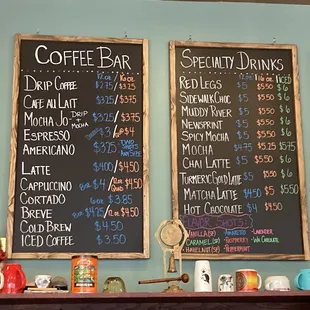 COFFEE BAR
12 oz / 16 oz
DRIP COFFEE $2.75 / $3.25
CAFE AU LAIT $3.25 / $3.75
MOCHA JO - DRIP + MOCHA $3.25 / $3.75
ESPRESSO $3 / $4
AMERICANO $3.25
LATTE $4 / $4.50
CAPPUCCINO $4 / $4.50
CORTADO $3.85
BREVE $4.25 / $4.50
COLD BREW $4.50
ICED COFFEE $3.50
SPECIALTY DRINKS
12 oz. 16 oz. ICED
RED LEGS $5 $5.50 $6
SIDEWALK CHOC $5 $5.50 $6
MUDDY RIVER $5 $5.50 $6
NEWSPRINT $5 $5.50 $6
SPICY MOCHA $5 $5.50 $6
MOCHA $4.75 $5.25 $5.50
CHAI LATTE $5 $5.50 $6
TURMERIC GOLD LATTE $5 $5.50 $6
MATCHA LATTE $4.50 $5 $5.50
HOT CHOCOLATE $4 $4.50
ADD SHOTS!
VANILLA
CARAMEL RASPBERRY
HAZELNUT PEPPERMINT
LAVENDER